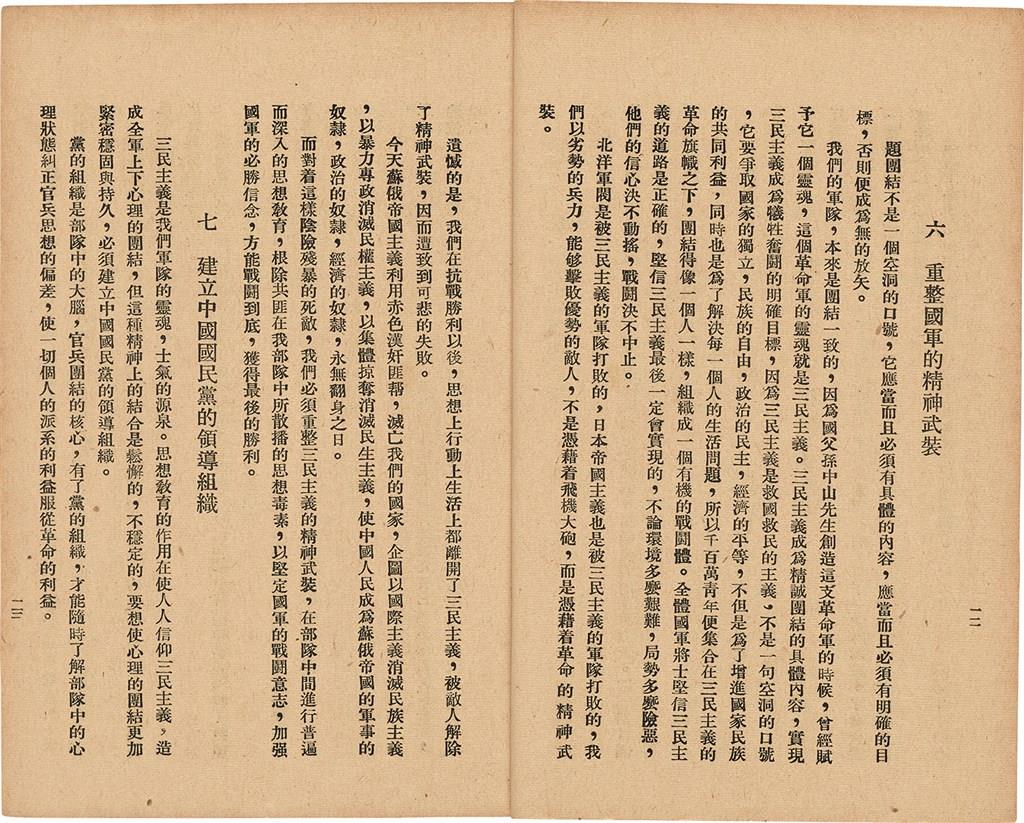 六　重整國軍的精神武裝
題團結不是一個空洞的口號，它應當而且必須有具體的內容，應當而且必須有明確的目
標，否則便成爲無的放矢。
我們的軍隊，本來是團結一致的，因爲國父孫中山先生創造這支革命軍的時候，曾經賦
予它一個靈魂，這個革命軍的靈魂就是三民主義。三民主義成爲精誠團結的具體內容，實現
三民主義成爲犧牲奮鬪的明確目標，因爲三民主義是救國救民的主義。不是一句空洞的口號
，它要爭取國家的獨立，民族的自由，政治的民主，經濟的平等，不但是爲了增進國家民族
的共同利益，同時也是爲了解決每一個人的生活問題，所以千百萬靑年便集合在三民主義的
革命旗幟之下，團結得像一個人一樣，組織成一個有機的戰鬪體。全體國軍將士堅信三民主
義的道路是正確的，堅信三民主義最後一定會實現的，不論環境多麼艱難，局勢多麼險惡，
他們的信心決不動搖，戰鬪決不中止。
北洋軍閥是被三民主義的軍隊打敗的，日本帝國主義也是被三民主義的軍隊打敗的，我
們以劣勢的兵力，能够擊敗優勢的敵人，不是憑藉着飛機大砲，而是憑藉着革命的精神武
裝。
一二
遺憾的是，我們在抗戰勝利以後，思想上行動上生活上都離開了三民主義，被敵人解除
了精神武裝，因而遭致到可悲的失敗。
今天蘇俄帝國主義利用赤色漢奸匪幫，滅亡我們的國家，企圖以國際主義消滅民族主義
，以暴力專政消滅民權主義，以集體掠奪消滅民生主義，使中國人民成爲蘇俄帝國的軍事的
奴隸，政治的奴隸，經濟的奴隸，永無翻身之日。
而對着這樣陰險殘暴的死敵，我們必須重整三民主義的精神武裝，在部隊中間進行普遍
而深入的思想敎育，根除共匪在我部隊中所散播的思想毒素，以堅定國軍的戰鬪意志，加强
國軍的必勝信念，方能戰鬪到底，獲得最後的勝利。
七　建立中國國民黨的領導組織
三民主義是我們軍隊的靈魂，士氣的源泉。思想敎育的作用在使人人信仰三民主義，造
成全軍上下心理的團結，但這種精神上的結合是鬆懈的，不穩定的，要想使心理的團結更加
緊密穩固與持久，必須建立中國國民黨的領導組織。
黨的組織是部隊中的大腦，官兵團結的核心，有了黨的組織，才能隨時了解部隊中的心
理狀態糾正官兵思想的偏差，使一切個人的派系的利益服從革命的利益。
一三